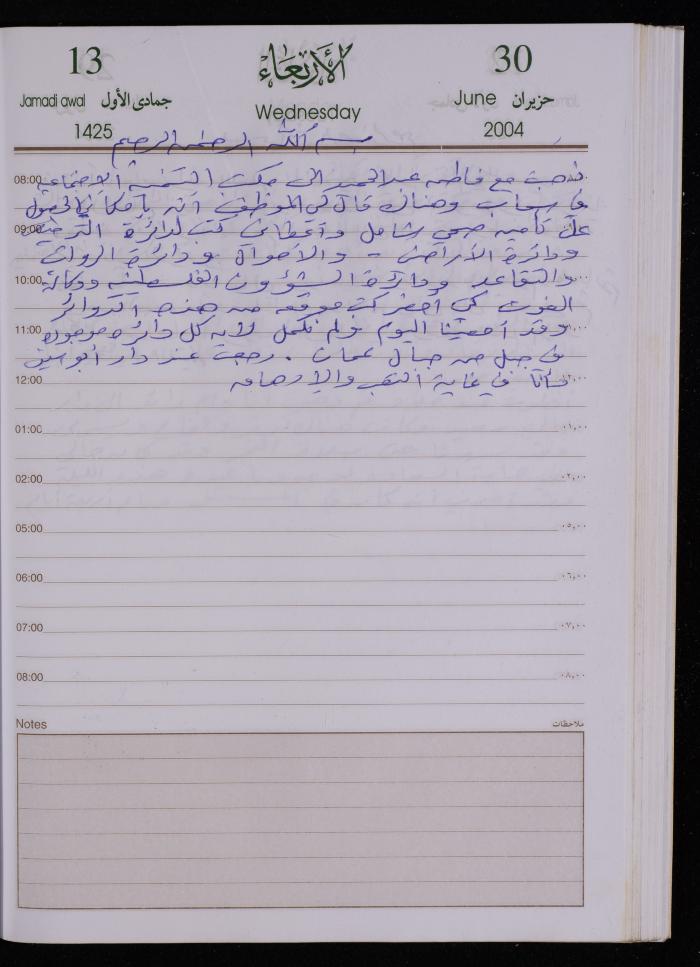 13
الأربعاء
30
Jamadi awal جمادى الأول
Wednesday
June حزيران
1425
2004
بسم الله الرحمن الرحيم
08:00 ذهبت مع فاطمه عبد الحميد الى مكتب التنمية الاجتماعية
في سحاب وهناك قال لي الموظف انه بإمكاني الحصول
09:00 على تأمين صحي شامل وأعطاني كتب لدائرة الترخيص
ودائرة الأراضي - والأحوال ودائرة الرواتب
10:00 والتقاعد ودائرة الشؤون الفلسطينية ووكالة
الغوث كي أحضر كتب موقعه من هذه الدوائر
11:00 وقد أمضينا اليوم ولم نكمل لأن كل دائره موجوده
في جبل من جبال عمان . رجعت عند دار أبو
12:00 وأنا في غاية التعب والإرهاق
01:00 ٠١,٠٠
02:00 ٠٢,٠٠
05:00 ٠٥,٠٠
06:00 ٠٦,٠٠
07:00 ٠٧,٠٠
08:00 ٠٨,٠٠
Notes ملاحظات